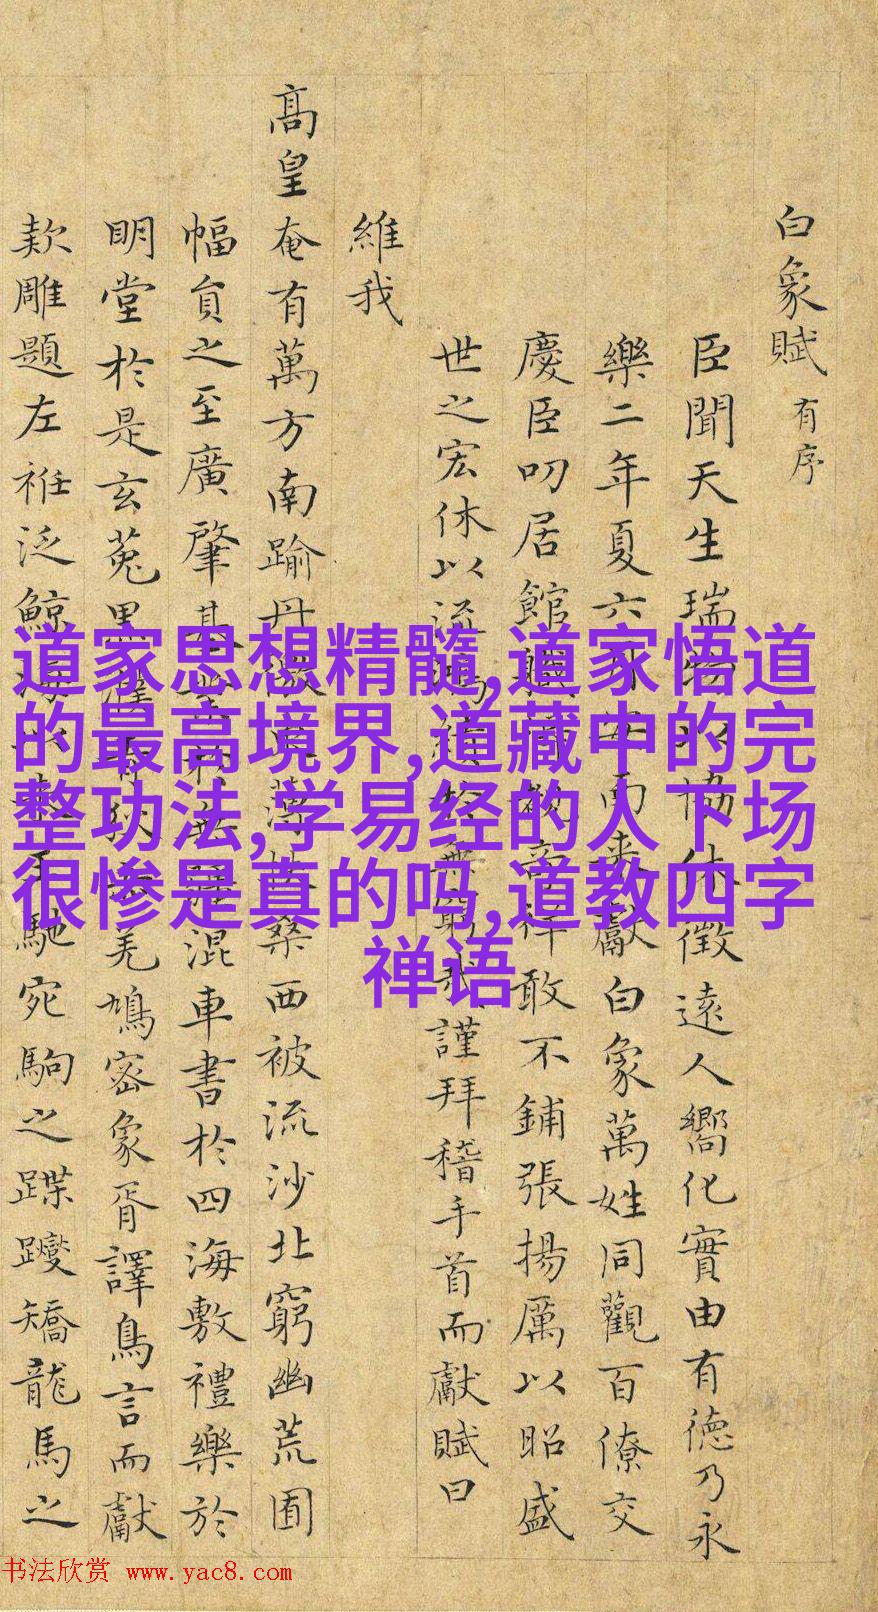 白象賦 有序
臣聞天生瑞物以協休徵遠人嚮化實由有德乃永
樂二年夏六月 而來獻白象萬姓同觀百僚交
慶臣叨居館職 敢不鋪張揚厲以昭盛
世之宏休以流鴻績於無窮 謹拜稽手首而獻賦曰
維我
高皇奄有萬方南踰丹 桑西被流沙北窮幽荒園
幅貟之至廣肇基 混車書於四海敷禮樂於
明堂於是玄菟黑 羌鳩宻象胥譯鳥言而獻
欵雕題左袵泛鯨海 馳宛駒之蹀躞矯龍馬之
道家思想精髓,道家悟道
的最高境界,道藏中的完
整功法,学易经的人下场
很惨是真的吗,道教四字
禅语
书法欣赏 www.yac8.com